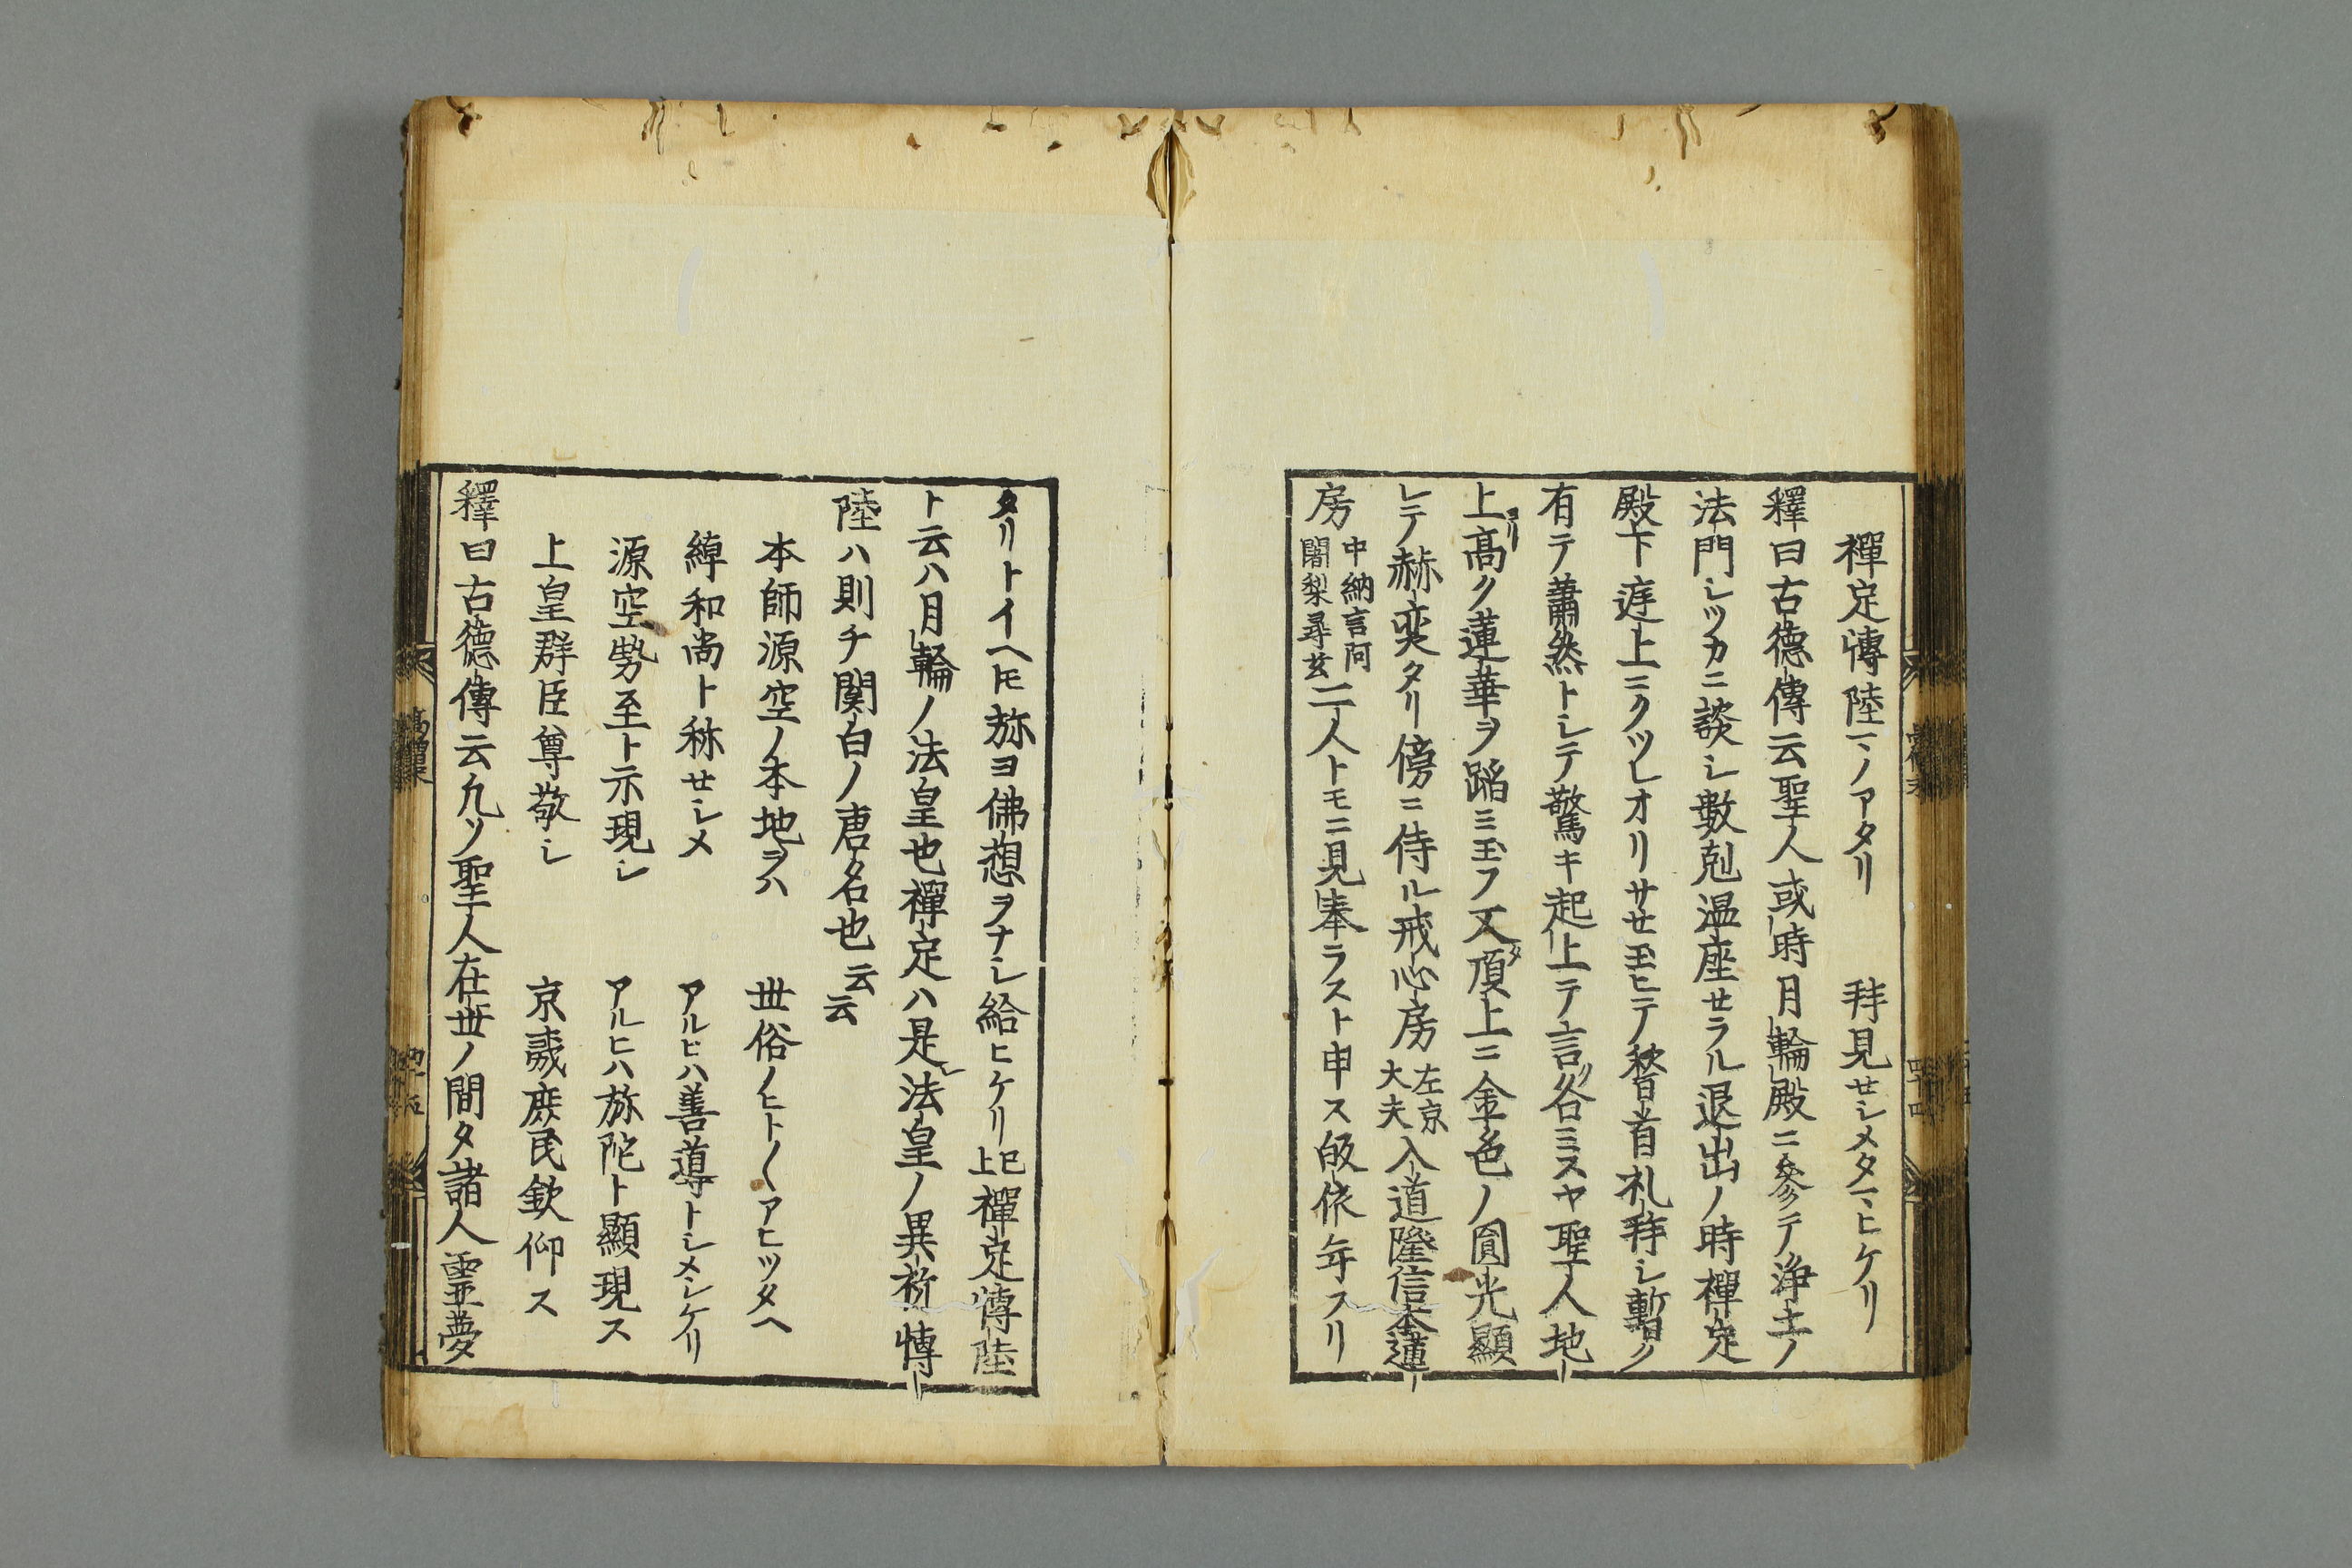 禪定博陸マノアタリ　拜見セシメタマヒケリ
釋曰古德傳云聖人或時月輪殿ニ參テ浄土ノ
法門シツカニ談シ數剋温座セラル退出ノ時禪定
殿下庭上ニクツレオリサセ玉ヒテ稽首礼拜シ暫ク
有テ蕭然トシテ驚キ起上テ言ク各ミスヤ聖人地ヨリ
上高ク蓮華ヲ蹈ミ玉フ又タ頂上ニ金色ノ圓光顯
レテ赫奕タリ傍ニ侍ル戒心房左京大夫入道隆信本蓮
房中納言阿闍梨尋玄二人トモニ見奉ラスト申ス皈依年フリ
タリトイヘモ弥ヨ佛想ヲナシ給ヒケリ已上禪定博陸
ト云ハ月輪ノ法皇也禪定ハ是レ法皇ノ異称博
陸ハ則チ関白ノ唐名也云云
本師源空ノ本地ヲハ　世俗ノヒト〱アヒツタヘ
綽和尚ト称セシメ　アルヒハ善導トシメシケリ
源空勢至ト示現シ　アルヒハ弥陀ト顯現ス
上皇群臣尊敬シ　京夷庶民欽仰ス
釋曰古德傳云凡ソ聖人在世ノ間タ諸人霊夢